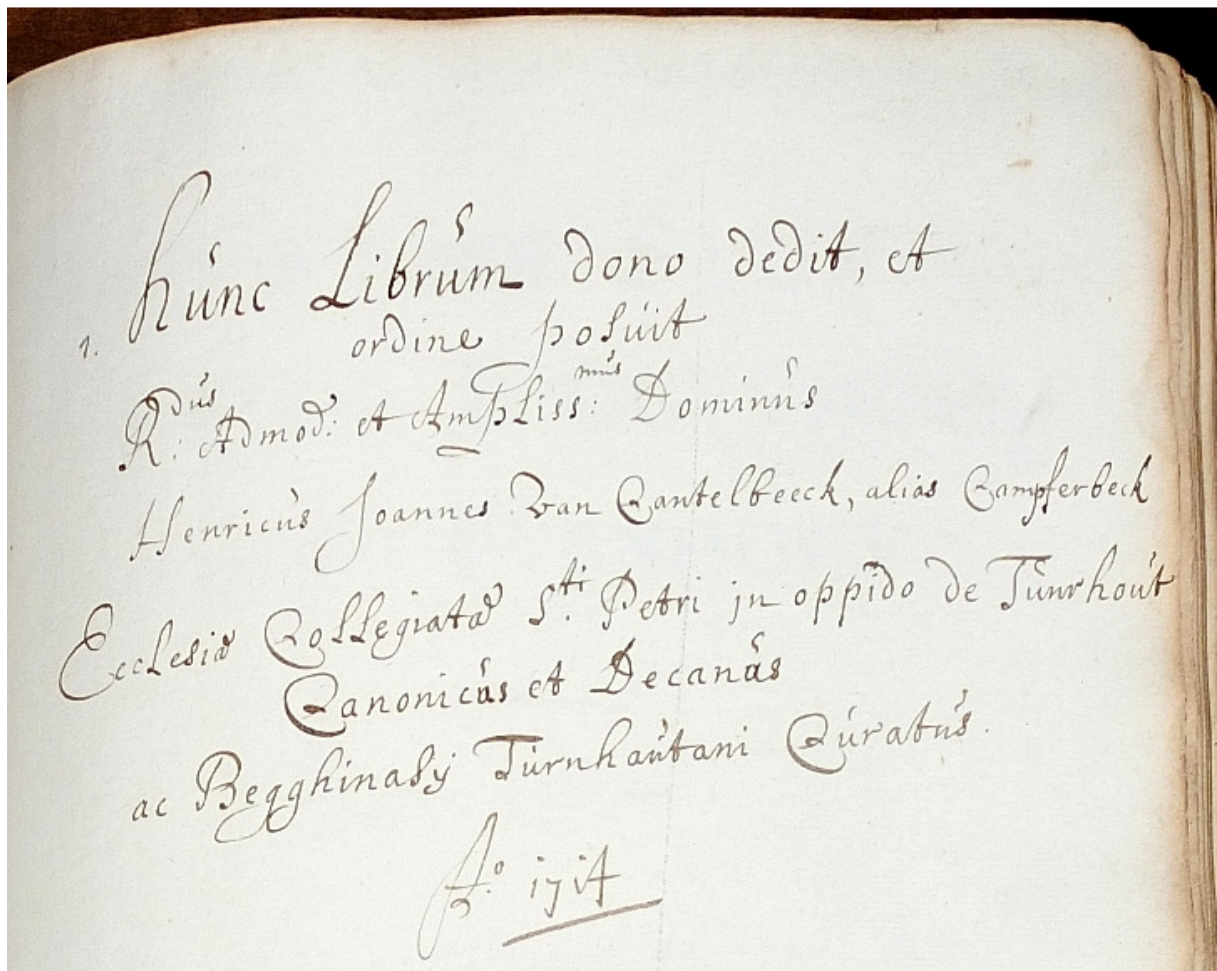 1. Hunc Librum dono dedit, et
ordine posuit
R:dus Admod: et Ampliss:mus Dominus
Henricus Joannes Van Cantelbeeck, alias Campferbeck
Ecclesiæ Collegiatæ S.ti Petri in oppido de Turnhout
Canonicus et Decanus
ac Begghinasij Turnhautani Curatus.
Ao. 1714